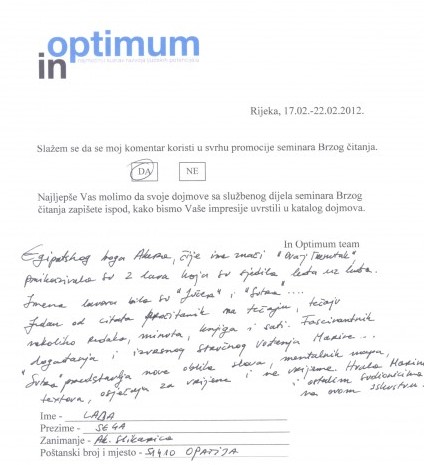 optimum
in
Rijeka, 17.02.-22.02.2012.
Slažem se da se moj komentar koristi u svrhu promocije seminara Brzog čitanja.
DA NE
Najljepše Vas molimo da svoje dojmove sa službenog dijela seminara Brzog
čitanja zapišete ispod, kako bismo Vaše impresije uvrstili u katalog dojmova.
In Optimum team
Egipatskog boga Akera, čije ime znači "Ovaj Trenutak"
prikazivala su 2 lava koja su sjedila leđa uz leđa.
Imena lavova bila su "Jučer" i "Sutra"...
Jedan od citata pročitanih na tečaju, tečaju
nekoliko redaka, minuta, knjiga i sati. Fascinantnih
događanja i izvrsnog stručnog vođenja Marine...
"Sutra" predstavlja nove oblike slova, mentalnih mapa,
tekstova, osjećaja za vrijeme i ne vrijeme Hvala Marino
i ostalim sudionicima
na ovom iskustvu
Ime - LADA
Prezime - SEGA
Zanimanje - Ak. Slikarica
Poštanski broj i mjesto - 51410 OPATIJA